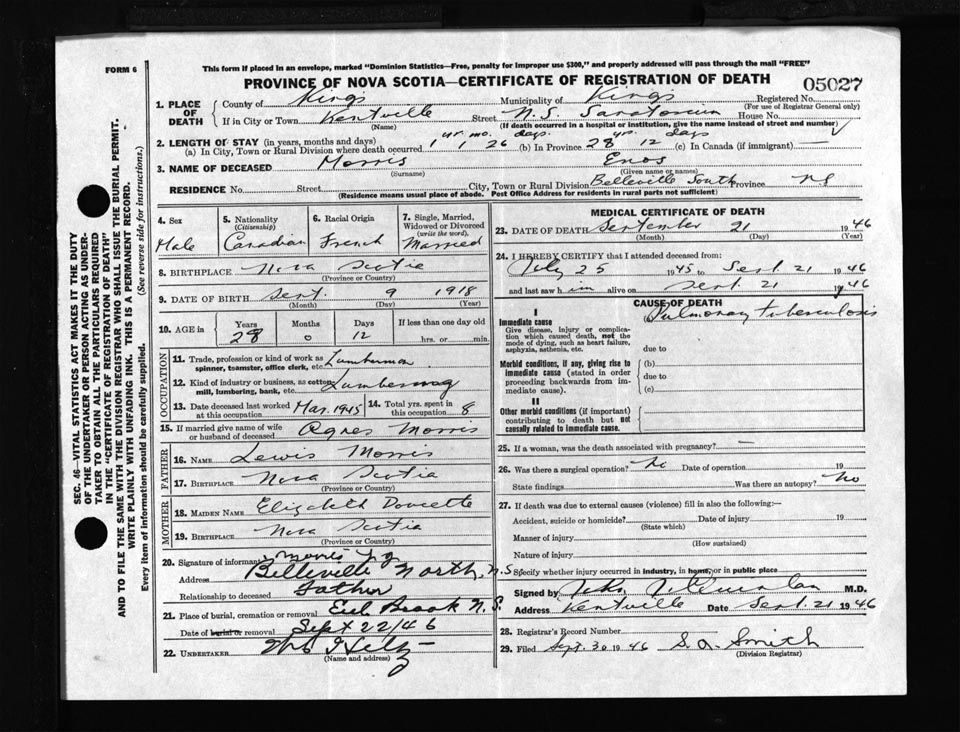 FORM 6
This form if placed in an envelope, marked "Dominion Statistics—Free, penalty for improper use $300," and properly addressed will pass through the mail "FREE"
PROVINCE OF NOVA SCOTIA—CERTIFICATE OF REGISTRATION OF DEATH
05027
1. PLACE OF DEATH
County of Kings Municipality of Kings Registered No.
(For use of Registrar General only)
If in City or Town Kentville Street N. S. Sanatorium House No.
(Name) (If death occurred in a hospital or institution, give the name instead of street and number)
yr. mo. days. yrs. days
2. LENGTH OF STAY (in years, months and days)
(a) In City, Town or Rural Division where death occurred 1 1 26 (b) In Province 28 12 (c) In Canada (if immigrant) —
3. NAME OF DECEASED Morris Enos
(Surname) (Given name or names)
RESIDENCE No. Street City, Town or Rural Division Belleville South Province N S
(Residence means usual place of abode. Post Office Address for residents in rural parts not sufficient)
SEC. 46—VITAL STATISTICS ACT MAKES IT THE DUTY
OF THE UNDERTAKER OR PERSON ACTING AS UNDER-
TAKER TO OBTAIN ALL THE PARTICULARS REQUIRED
IN THE "CERTIFICATE OF REGISTRATION OF DEATH"
AND TO FILE THE SAME WITH THE DIVISION REGISTRAR WHO SHALL ISSUE THE BURIAL PERMIT.
WRITE PLAINLY WITH UNFADING INK. THIS IS A PERMANENT RECORD.
Every item of information should be carefully supplied. (See reverse side for instructions.)
4. Sex
Male
5. Nationality
(Citizenship)
Canadian
6. Racial Origin
French
7. Single, Married,
Widowed or Divorced
(write the word),
Married
8. BIRTHPLACE Nova Scotia
(Province or Country)
9. DATE OF BIRTH Sept. 9 1918
(Month) (Day) (Year)
10. AGE in
Years Months Days If less than one day old
28 0 12 hrs. or min.
OCCUPATION
11. Trade, profession or kind of work as Lumberman
spinner, teamster, office clerk, etc.
12. Kind of industry or business, as cotton
mill, lumbering, bank, etc.
13. Date deceased last worked Mar. 1945
at this occupation
14. Total yrs. spent in
this occupation 8
15. If married give name of wife
or husband of deceased Agnes Morris
FATHER
16. NAME Lewis Morris
17. BIRTHPLACE Nova Scotia
(Province or Country)
MOTHER
18. MAIDEN NAME Elizabeth Doucette
19. BIRTHPLACE Nova Scotia
(Province or Country)
20. Signature of informant Morris
Address Belleville North, N. S.
Relationship to deceased Father
21. Place of burial, cremation or removal Eel Brook N. S.
Date of burial or removal Sept 22/46
22. UNDERTAKER
(Name and address)
MEDICAL CERTIFICATE OF DEATH
23. DATE OF DEATH September 21 1946
(Month) (Day) (Year)
24. I HEREBY CERTIFY that I attended deceased from:
July 25 1945 to Sept. 21 1946
and last saw him alive on Sept. 21 1946
CAUSE OF DEATH
I
Immediate cause Pulmonary tuberculosis
Give disease, injury or complica-
tion which caused death, not the
mode of dying, such as heart failure,
asphyxia, asthenia, etc.
due to
Morbid conditions, if any, giving rise to
immediate cause (stated in order
proceeding backwards from im-
mediate cause).
(b)
due to
(c)
II
Other morbid conditions (if important)
contributing to death but not
causally related to immediate cause.
25. If a woman, was the death associated with pregnancy? —
26. Was there a surgical operation? No Date of operation 19
State findings Was there an autopsy? No
27. If death was due to external causes (violence) fill in also the following:—
Accident, suicide or homicide? Date of injury 19
(State which)
Manner of injury
(How sustained)
Nature of injury
Specify whether injury occurred in industry, in home, or in public place
Signed by M.D.
Address Kentville Date Sept. 21 1946
28. Registrar's Record Number
29. Filed Sept. 30 1946 S. A. Smith
(Division Registrar)